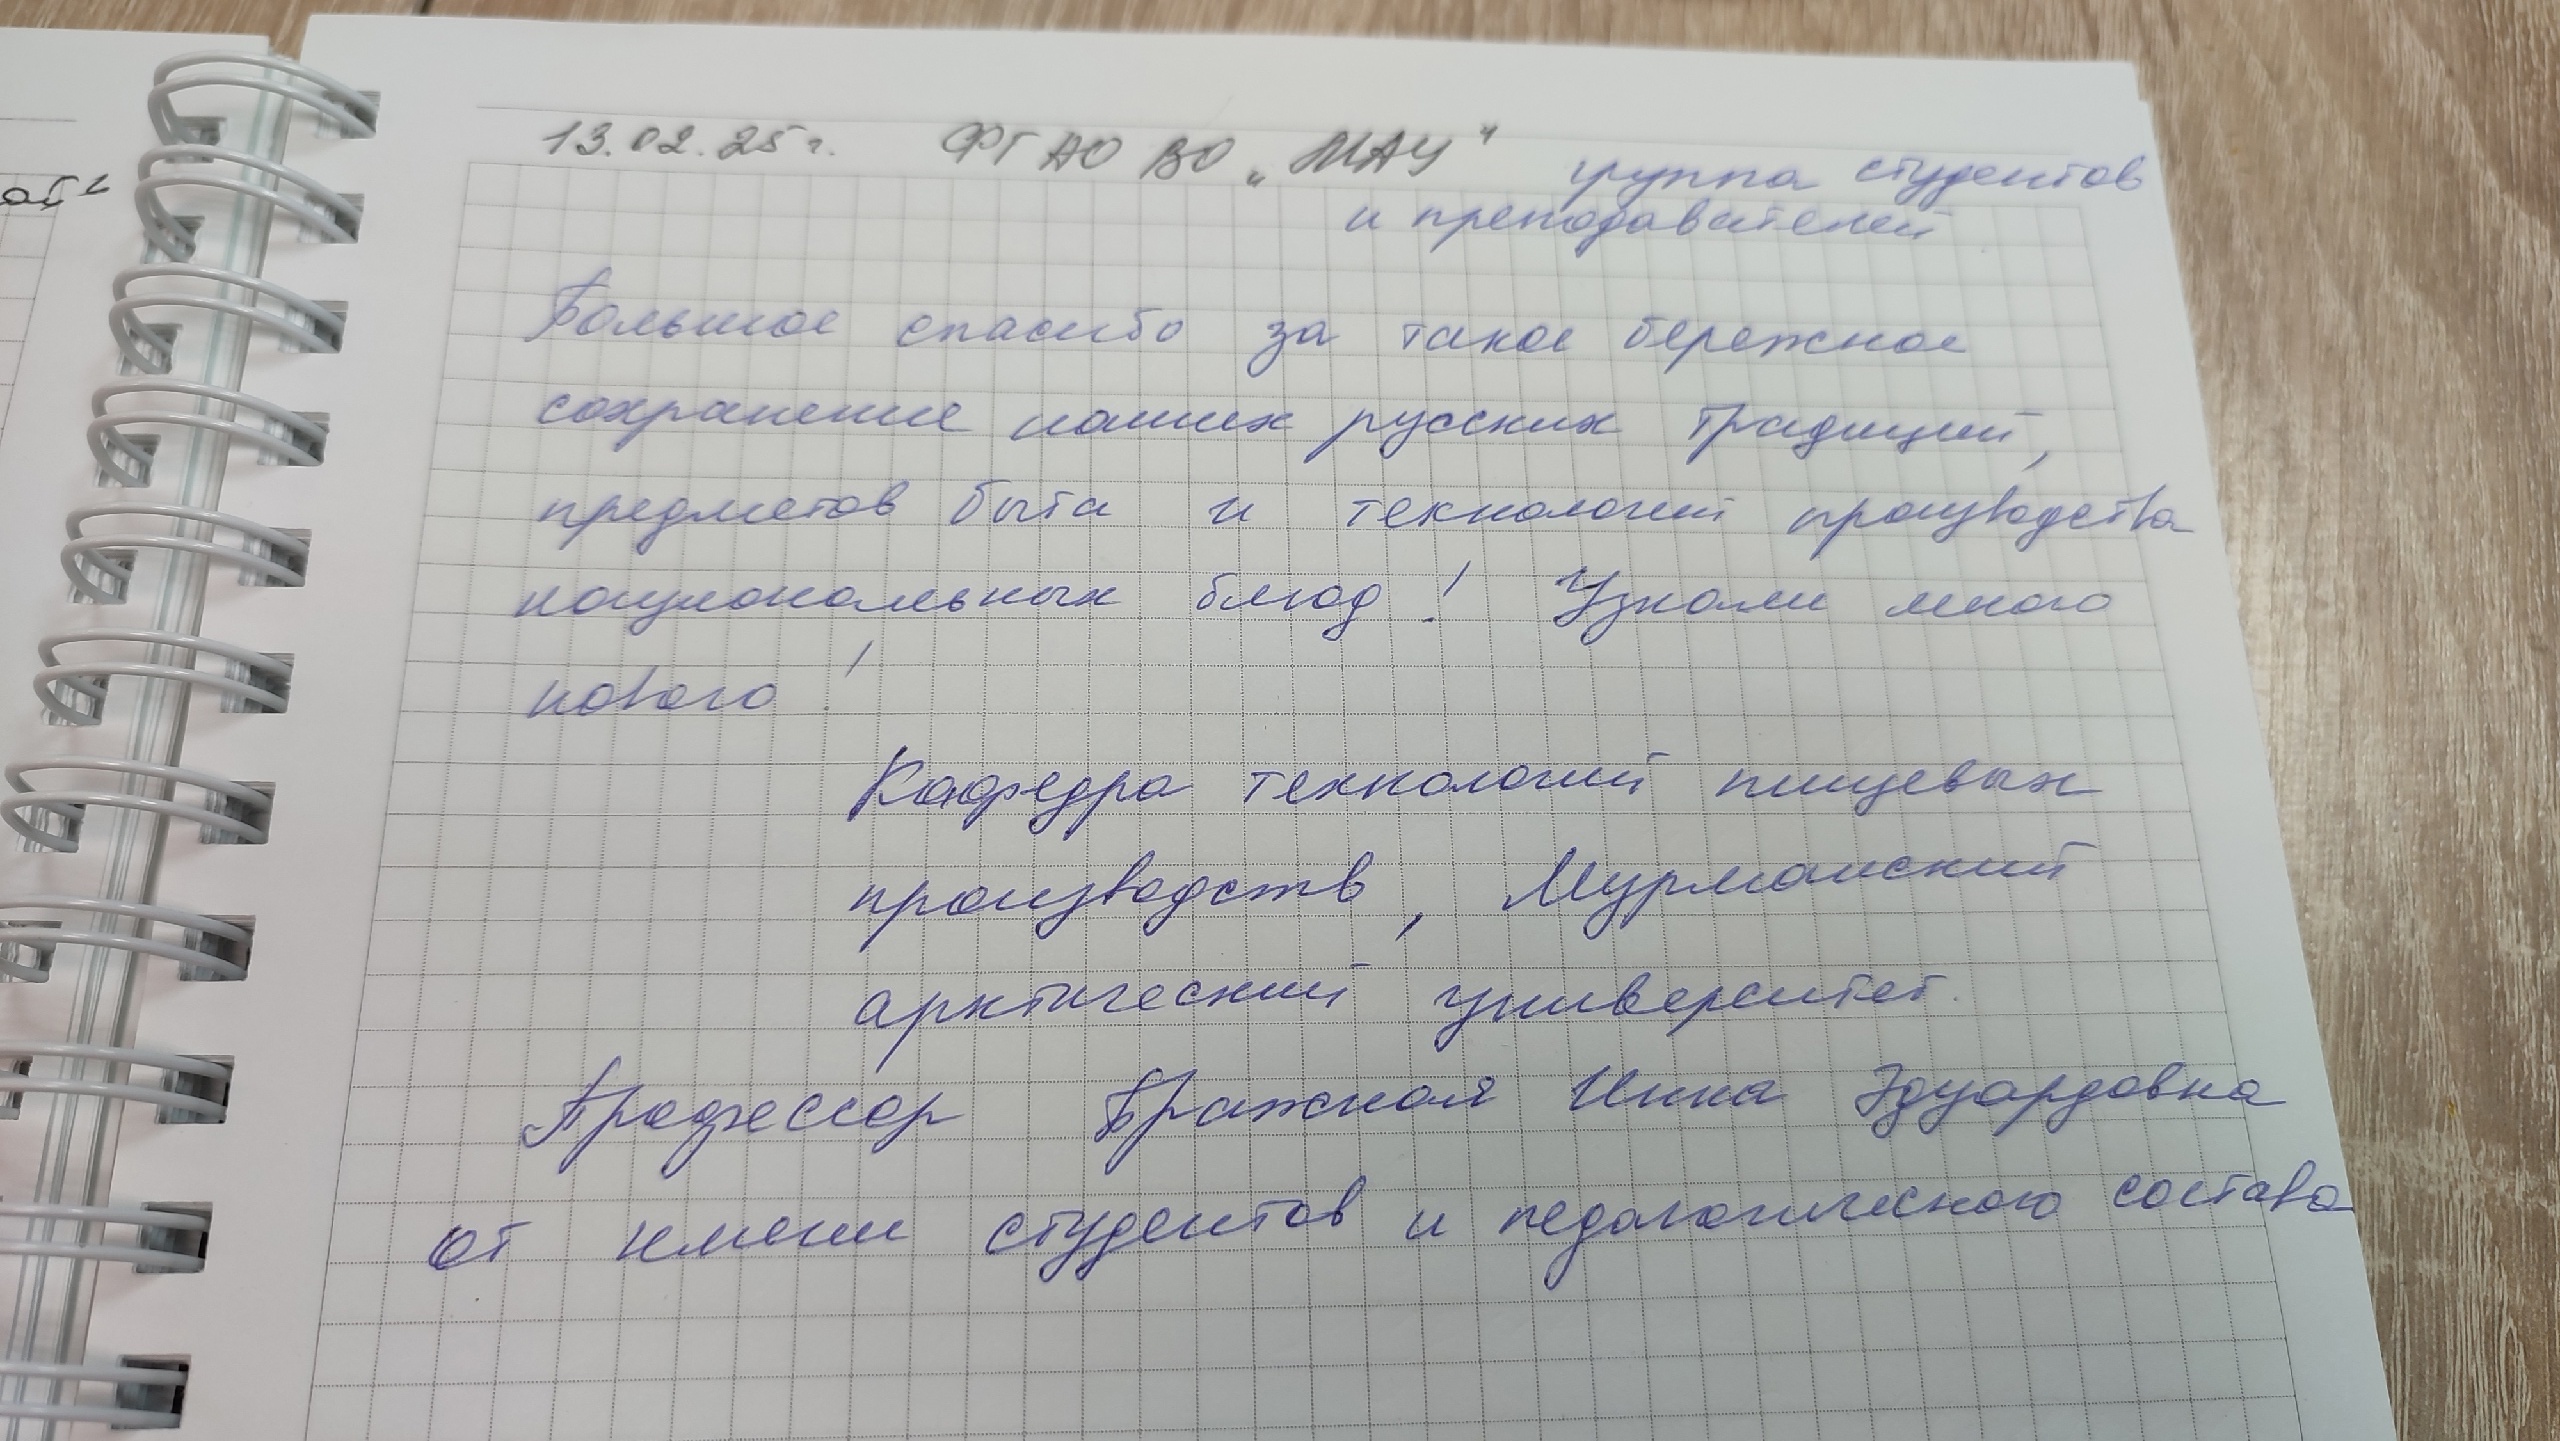 13.02.25 г. ФГАО ВО „МАУ" группа студентов
и преподавателей
Большое спасибо за такое бережное
сохранение наших русских традиций,
предметов быта и технологий производства
национальных блюд! Узнали много
нового!
Кафедра технологий пищевых
производств, Мурманский
арктический университет.
Профессор Бражная Инна Эдуардовна
от имени студентов и педагогического состава